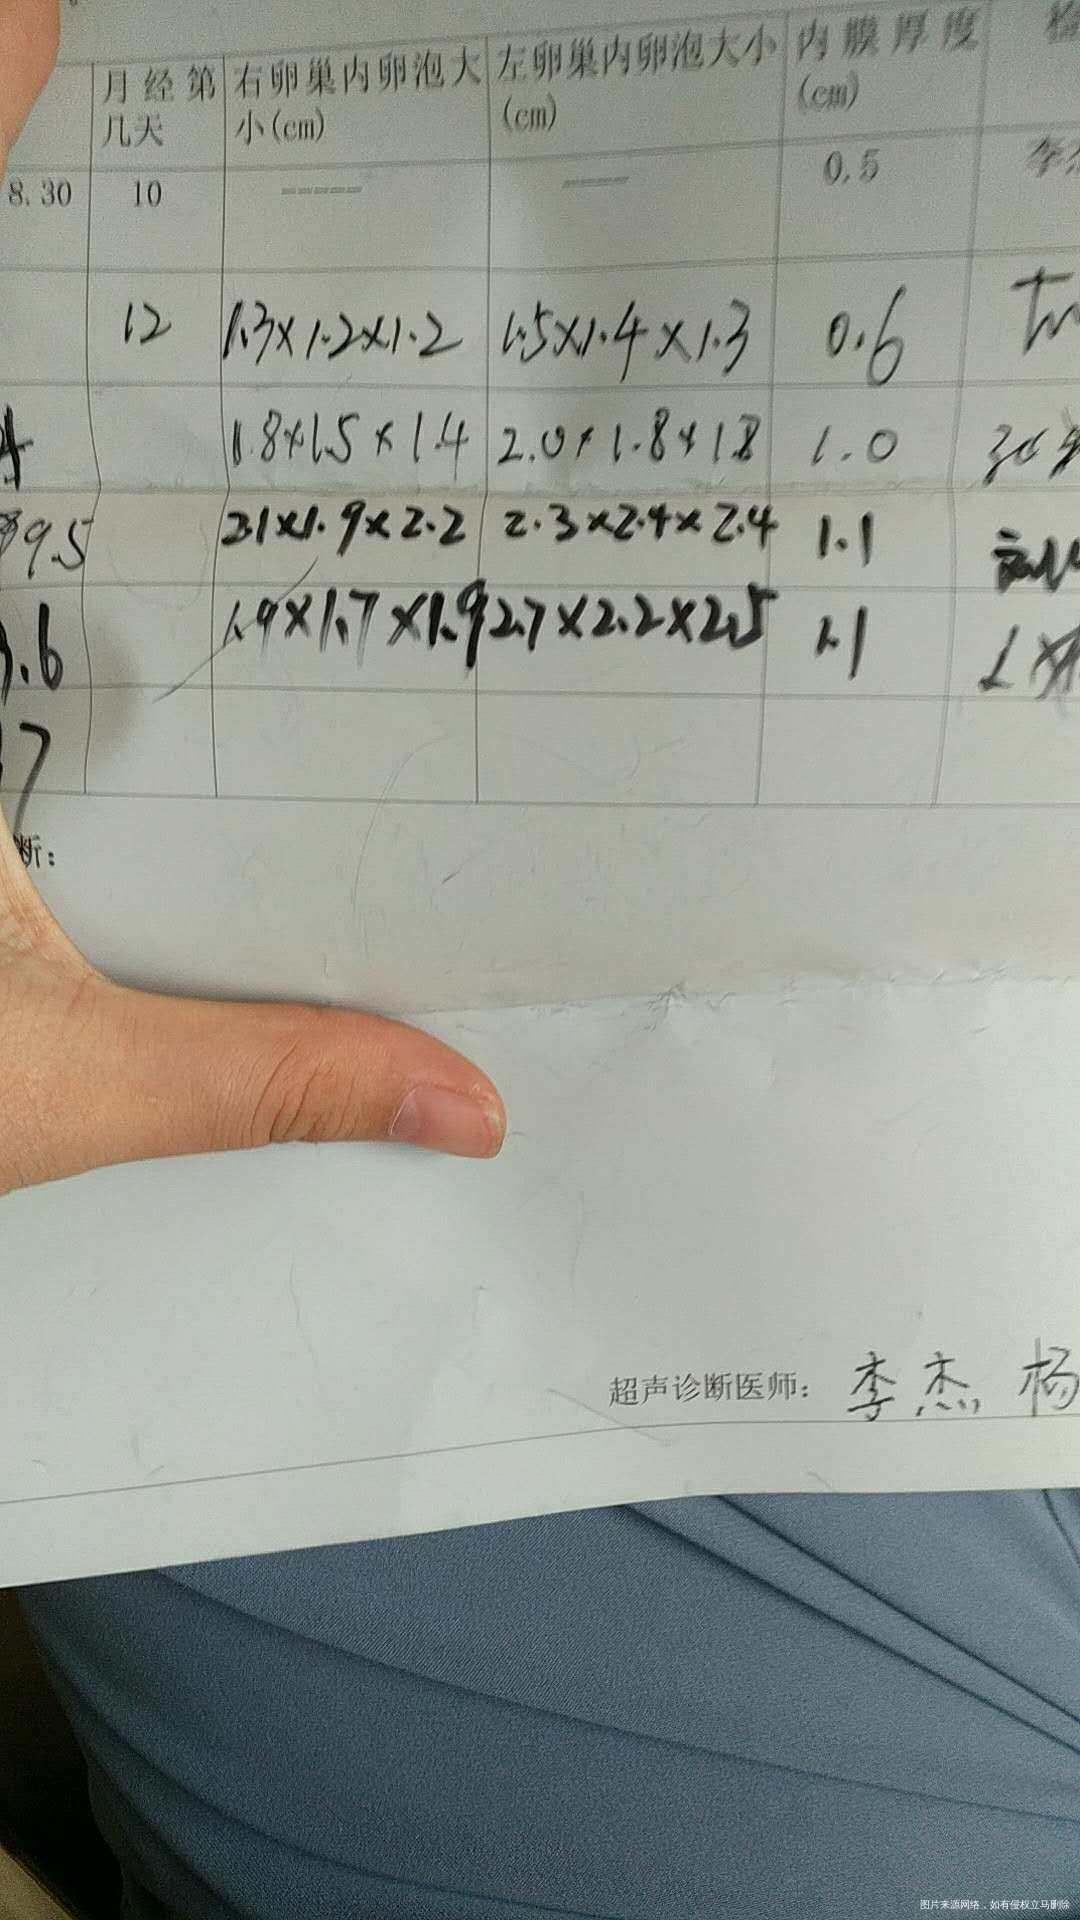 月经第几天 右卵巢内卵泡大小(cm) 左卵巢内卵泡大小(cm) 内膜厚度(cm)
8.30 10 ------ ------ 0.5 李
12 1.3×1.2×1.2 1.5×1.4×1.3 0.6
1.8×1.5×1.4 2.0×1.8×1.8 1.0
9.5 2.1×1.9×2.2 2.3×2.4×2.4 1.1
.6 1.9×1.7×1.9 2.7×2.2×2.5 1.1
7
断：
超声诊断医师： 李杰 杨
图片来源网络，如有侵权立马删除